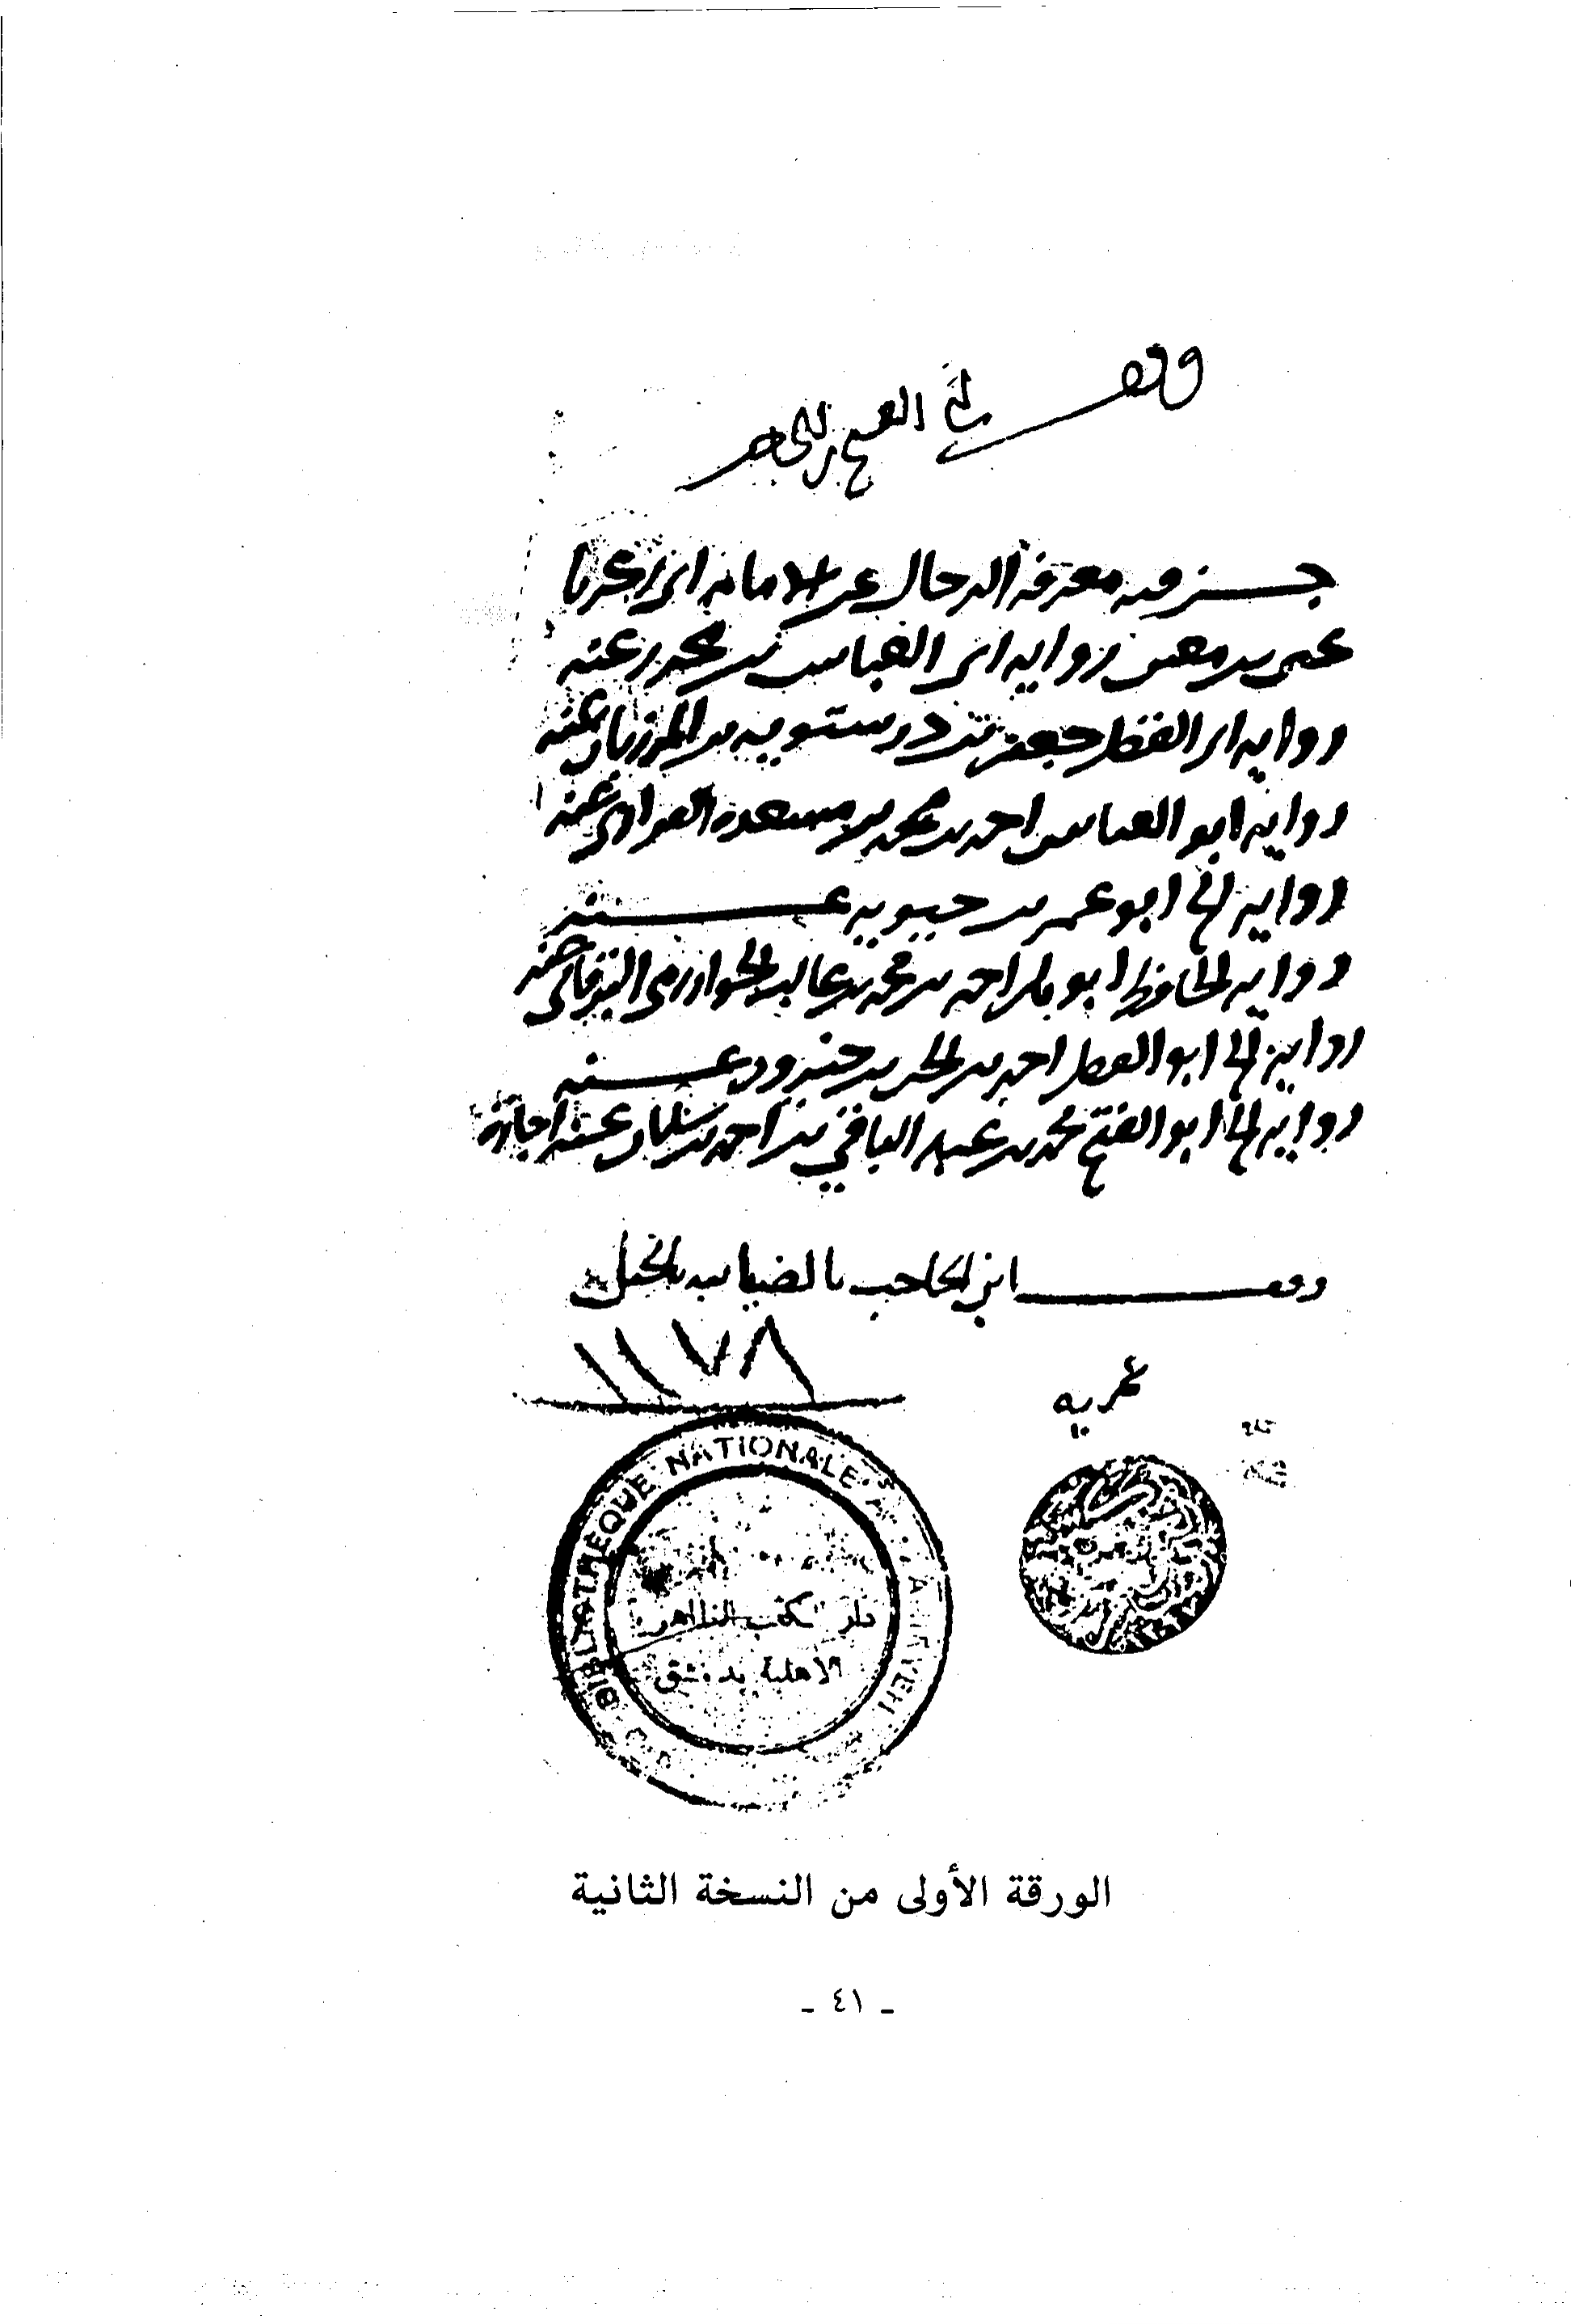 وقف
جزء فيه معرفة الرجال عن الامام ابي زكريا
يحيى بن معين رواية ابي العباس بن محرز عنه
رواية ابي الفضل جعفر بن درستويه بن المرزبان عنه
رواية ابو العباس احمد بن محمد بن مسعده الفزاري عنه
رواية ابو عمر بن حيويه عنه
رواية الحافظ ابو بكر احمد بن محمد بن غالب الخوارزمي البرقاني عنه
رواية ابو الفضل احمد بن الحسن بن خيرون عنه
رواية ابو الفتح محمد بن عبد الباقي بن احمد بن سلمان عنه اجازة
وقف ابن الحاجب بالضيائيه بالجبل
١١٧٨
عمريه
BIBLIOTHEQUE NATIONALE
دار الكتب الظاهرية
الاهلية بدمشق
الورقة الأولى من النسخة الثانية
- ٤١ -